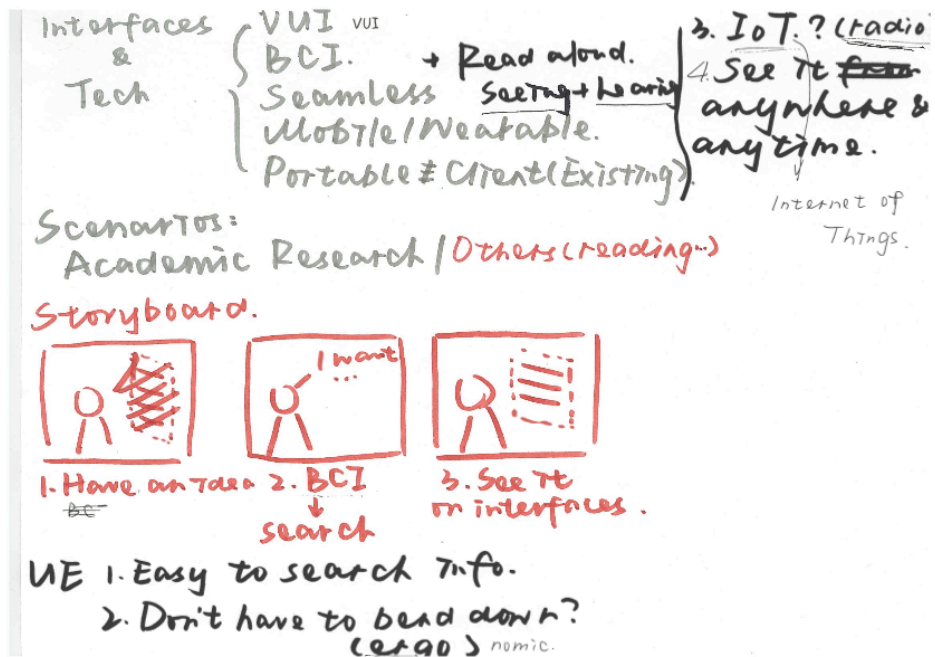 Interfaces
&
Tech
VUI VUI
BCI.
Seamless
Mobile/Weatable.
Portable ≠ Client(Existing)
+ Read aloud.
Seeing + hearing
3. IoT.? (radio
4. See it
anywhere &
anytime.
Internet of
Things.
Scenarios:
Academic Research / Others(reading...)
Storyboard.
I want
...
1. Have an idea
BC
2. BCI
↓
search
3. See it
on interfaces.
UE 1. Easy to search info.
2. Don't have to bend down?
(ergo) nomic.